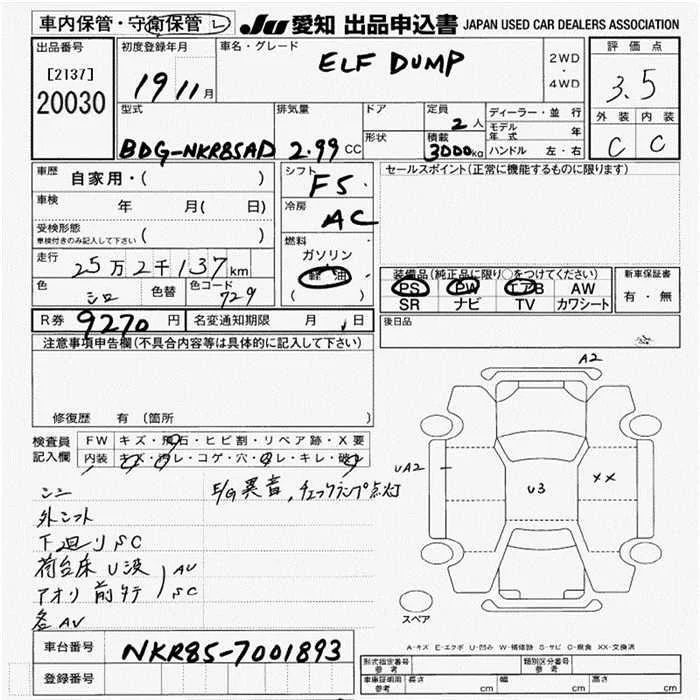 車内保管・守衛保管 L
JU 愛知 出品申込書 JAPAN USED CAR DEALERS ASSOCIATION
出品番号
[2137]
20030
初度登録年月
19 11 月
車名・グレード
ELF DUMP
2WD
・
4WD
評価点
3.5
外装 内装
C C
型式
BDG-NKR85AD
排気量
2.99 CC
ドア
形状
定員
2 人
積載
3000 kg
ディーラー・並行
モデル年式 年
ハンドル 左・右
車歴
自家用・( )
車検
年 月( 日)
受検形態
車検付きのみ記入して下さい ( )
走行
25万2千137 km
色
シロ
色替
色コード
729
シフト
F5
冷房
AC
燃料
ガソリン
軽油
( )
セールスポイント(正常に機能するものに限ります)
装備品(純正品に限り○をつけてください)
PS PW エアB AW
SR ナビ TV カワシート
新車保証書
有・無
R券 9270 円 名変通知期限 月 日
後日品
注意事項申告欄(不具合内容等は具体的に記入して下さい)
修復歴 有 (箇所 )
検査員記入欄
FW キズ・飛石・ヒビ割・リペア跡・X要
内装 キズ・汚レ・コゲ・穴・スレ・キレ・破レ
外シフト
下廻りSC
荷台床 U波
アオリ 前タテ
AU
SC
各AU
E/G異音,チェックランプ点灯
A2
UA2
U3
XX
スペア
A-キズ E-エクボ U-凹み W-補修跡 S-サビ C-腐食 XX-交換済
車台番号
NKR85-7001893
登録番号
形式指定番号 参考
類別区分番号 参考
車庫証明用 参考
長さ cm 幅 cm 高さ cm